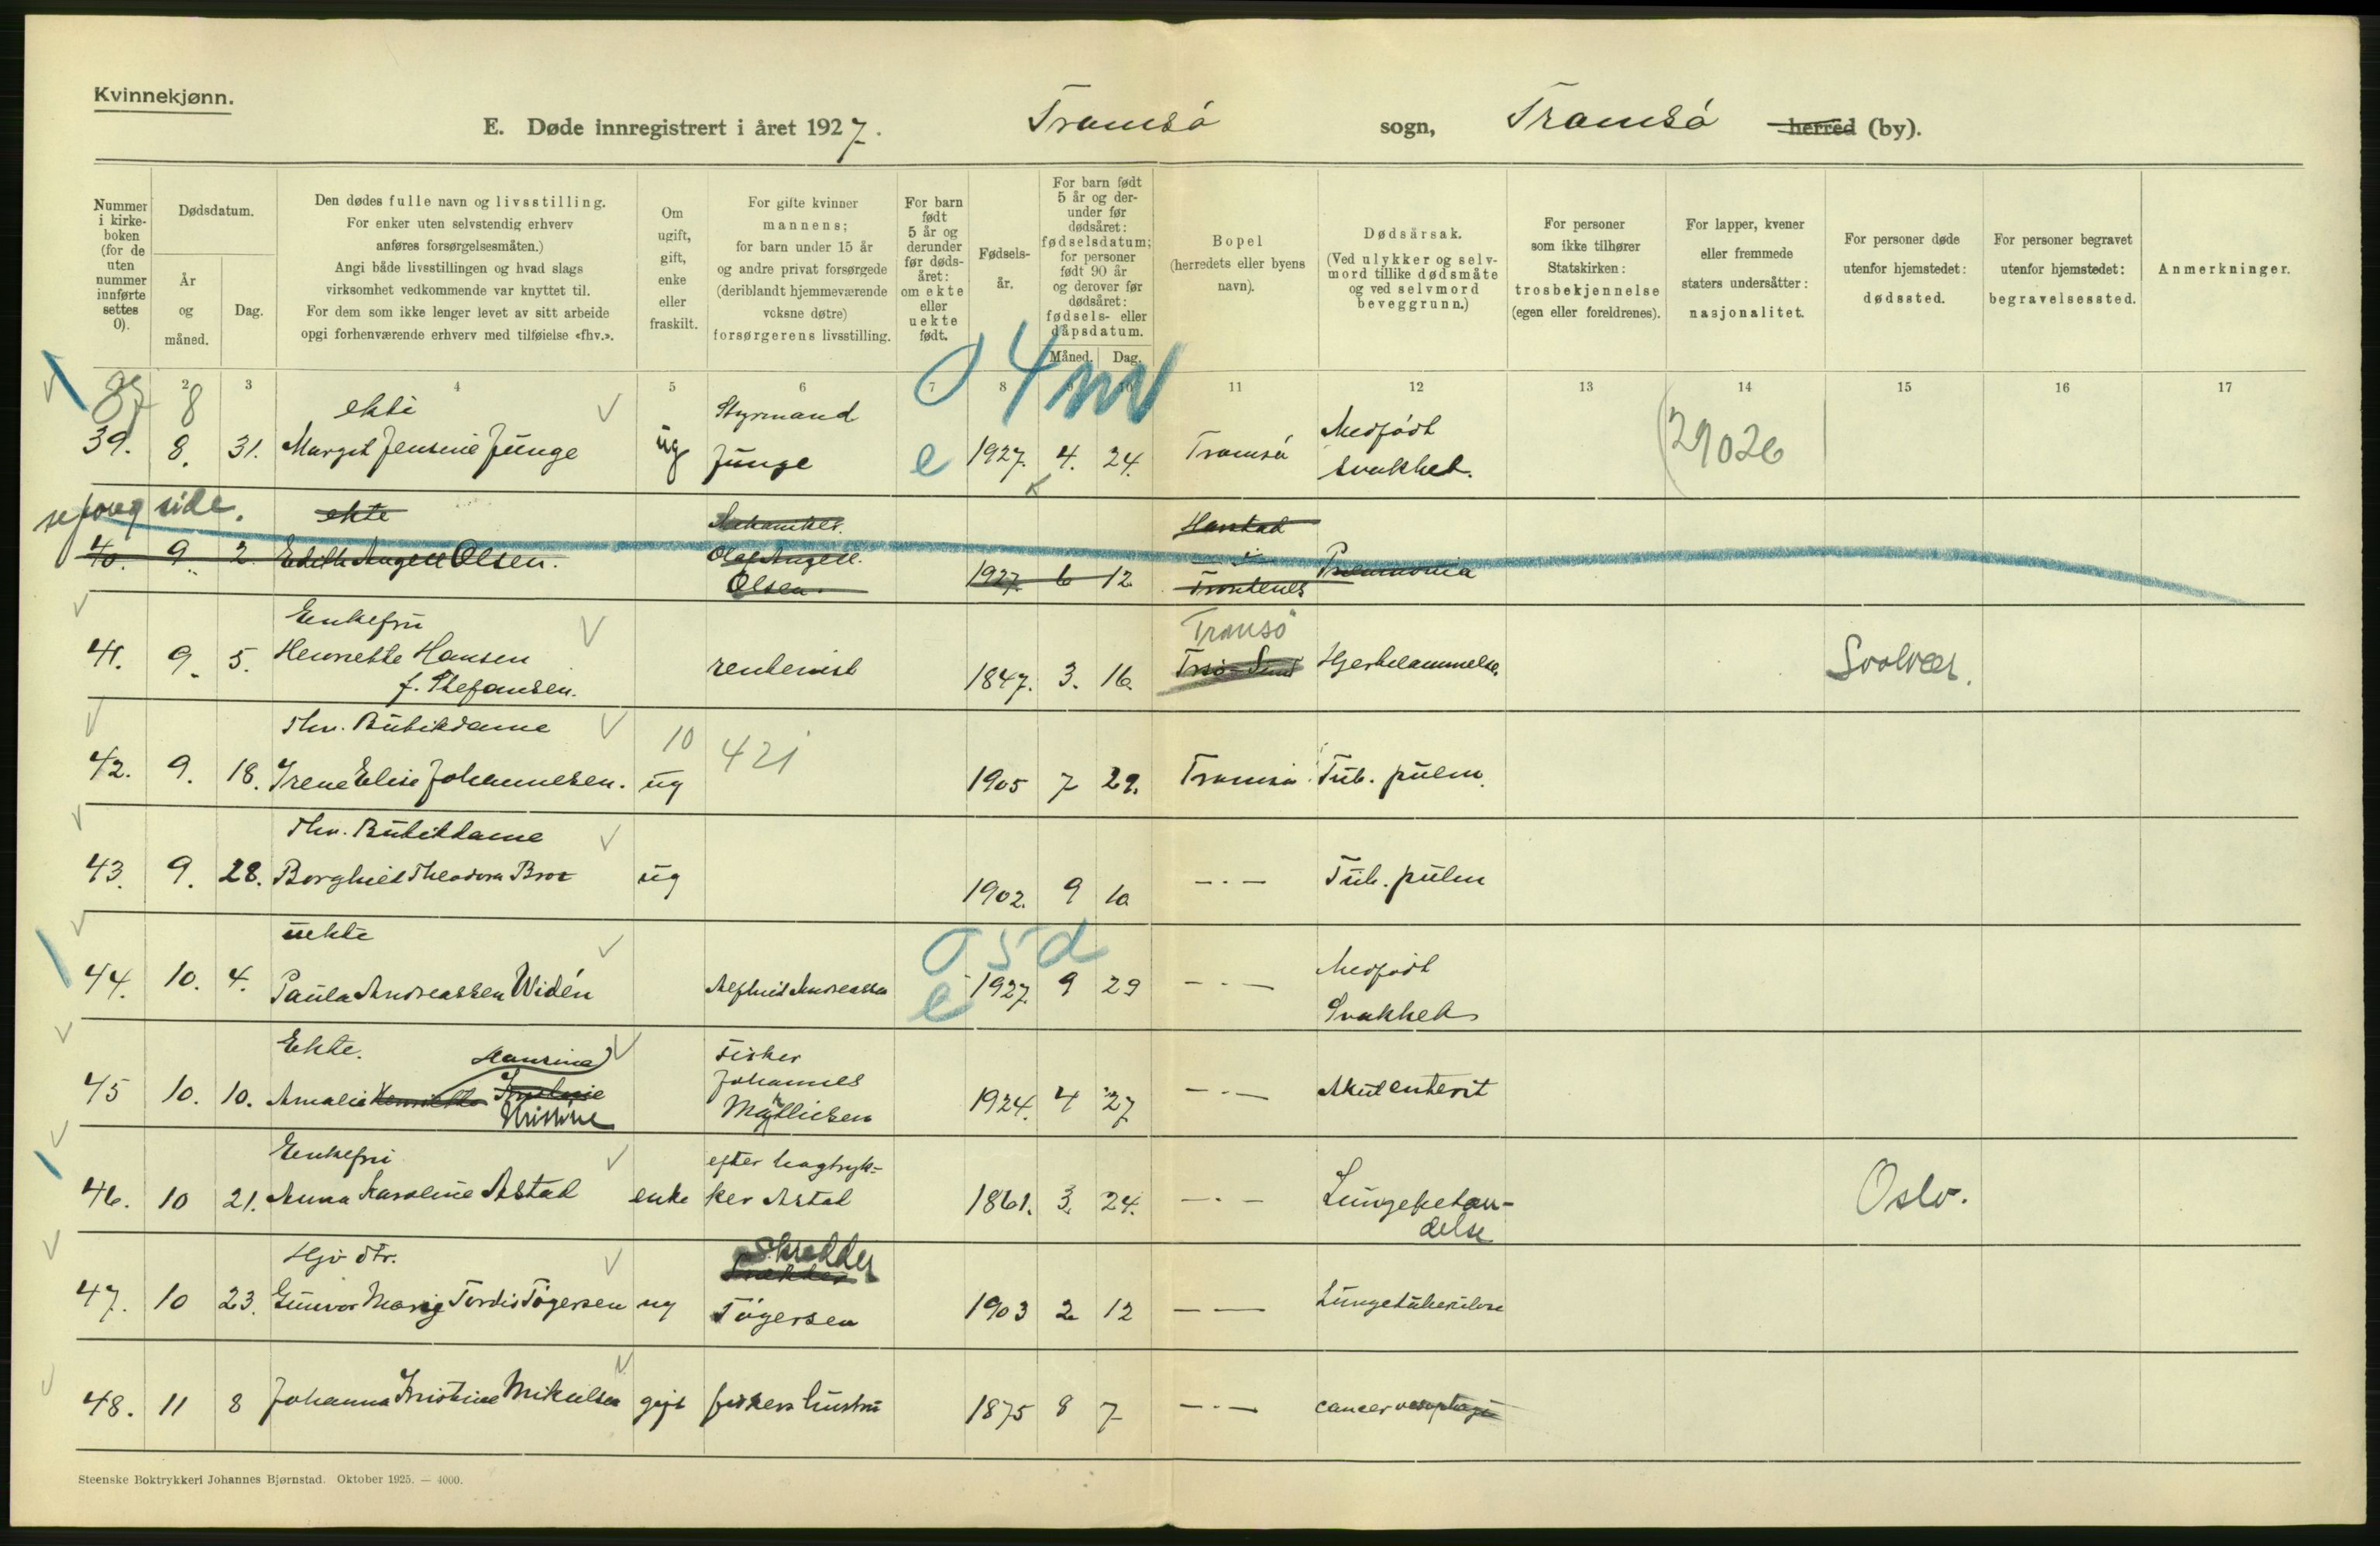 Kvinnekjønn.
E. Døde innregistrert i året 1927. Tromsø sogn, Tromsø herred (by).
Nummer i kirke-boken (for de uten nummer innførte settes 0).
Dødsdatum.
År og måned.
Dag.
Den dødes fulle navn og livsstilling.
For enker uten selvstendig erhverv
anføres forsørgelsesmåten.)
Angi både livsstillingen og hvad slags
virksomhet vedkommende var knyttet til.
For dem som ikke lenger levet av sitt arbeide
opgi forhenværende erhverv med tilføielse «fhv.».
Om ugift, gift, enke eller fraskilt.
For gifte kvinner
mannens;
for barn under 15 år
og andre privat forsørgede
(deriblandt hjemmeværende
voksne døtre)
forsørgerens livsstilling.
For barn født 5 år og derunder før døds-året: om ekte eller uekte født.
Fødsels-år.
For barn født 5 år og der-under før dødsåret: fødselsdatum; for personer født 90 år og derover før dødsåret: fødsels- eller dåpsdatum.
Måned. Dag.
Bopel
(herredets eller byens
navn).
Dødsårsak.
(Ved ulykker og selv-
mord tillike dødsmåte
og ved selvmord
beveggrunn.)
For personer
som ikke tilhører
Statskirken:
trosbekjennelse
(egen eller foreldrenes).
For lapper, kvener
eller fremmede
staters undersåtter:
nasjonalitet.
For personer døde
utenfor hjemstedet:
dødssted.
For personer begravet
utenfor hjemstedet:
begravelsessted.
Anmerkninger.
2 3 4 5 6 7 8 9 10 11 12 13 14 15 16 17
87 8 ekte Styrmand 04 Medfødt
39. 8. 31. Margit Jensine Junge ug Junge e 1927. 4. 24. Tromsø svakhet. 29026
se foreg side. ekte Harstad
40. 9. 2. Edith Angell Olsen. Olaf Angell. Olsen. 1927. 6 12. i Trondenes Pneumonia
Enkefru Tromsø
41. 9. 5. Henriette Hansen rentenist 1847. 3. 16. Hjertelammelse. Svolvær.
f. Stefansen.
fhv. Butikdame 10 421
42. 9. 18. Irene Elise Johannesen. ug 1905 7 29. Tromsø Tub. pulm.
fhv. Butikdame
43. 9. 28. Borghild Theodora Broz ug 1902. 9 10 - . - Tub. pulm
uekte 05d Medfødt
44. 10. 4. Paula Andreassen Widén Alfhild Andreassen e 1927. 9 29 - . - Svakhet
Ekte. Hansine Fisker
45 10. 10. Amalie Kristine Johannes 1924. 4 27 - . - Akut enterit
Enkefru efter bogtryk-
46. 10 21. Anna Karoline Astad enke ker Astad 1861. 3. 24. - . - Lungebetæn- Oslo.
delse
Hjv dtr. Skredder
47. 10 23. Gunvor Marie Tordis Tøgersen ug Tøgersen 1903 2 12 - - Lungetuberkulose
48. 11 8 Johanna Kristine Mikkelsen gift fiskers hustru 1875 8 7 - . - cancer oesophagi
Steenske Boktrykkeri Johannes Bjørnstad. Oktober 1925. — 4000.